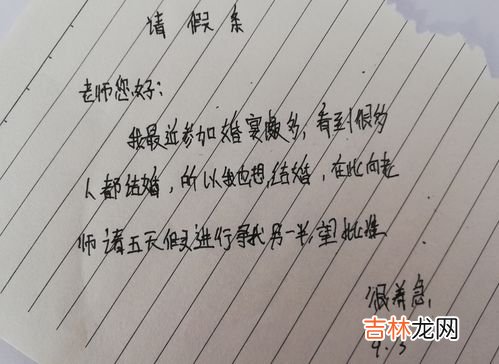 请假条
老师您好：
我最近参加婚宴颇多，看到很多
人都结婚，所以我也想结婚，在此向老
师请五天假进行寻找另一半，望批准
很着急.
9.3
吉林龙网